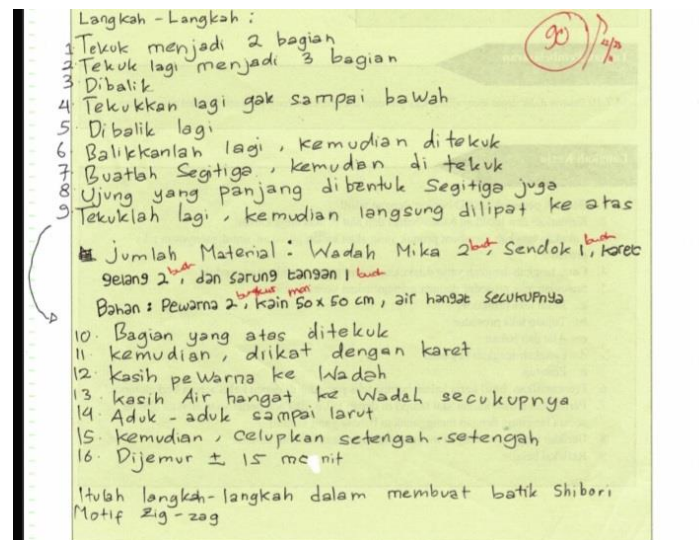 Langkah - Langkah :
90
1 Tekuk menjadi 2 bagian
2 Tekuk lagi menjadi 3 bagian
3 Dibalik
4. Tekukkan lagi gak sampai bawah
5. Dibalik lagi
6. Balikkanlah lagi, kemudian ditekuk
7. Buatlah Segitiga, kemudan di tekuk
8 Ujung yang panjang dibentuk Segitiga juga
9. Tekuklah lagi, kemudian langsung dilipat ke atas
Jumlah Material : Wadah Mika 2 buah, Sendok 1 buah, karet
gelang 2 buah, dan sarung tangan 1 buah
Bahan : Pewarna 2 bungkus, kain 50 x 50 cm, air hangat secukupnya
10. Bagian yang atas ditekuk
11. kemudian, diikat dengan karet
12. kasih pewarna ke Wadah
13. kasih Air hangat ke Wadah secukupnya
14. Aduk - aduk sampai larut
15. kemudian, celupkan setengah-setengah
16. Dijemur ± 15 menit
Itulah langkah-langkah dalam membuat batik Shibori
Motif zig-zag